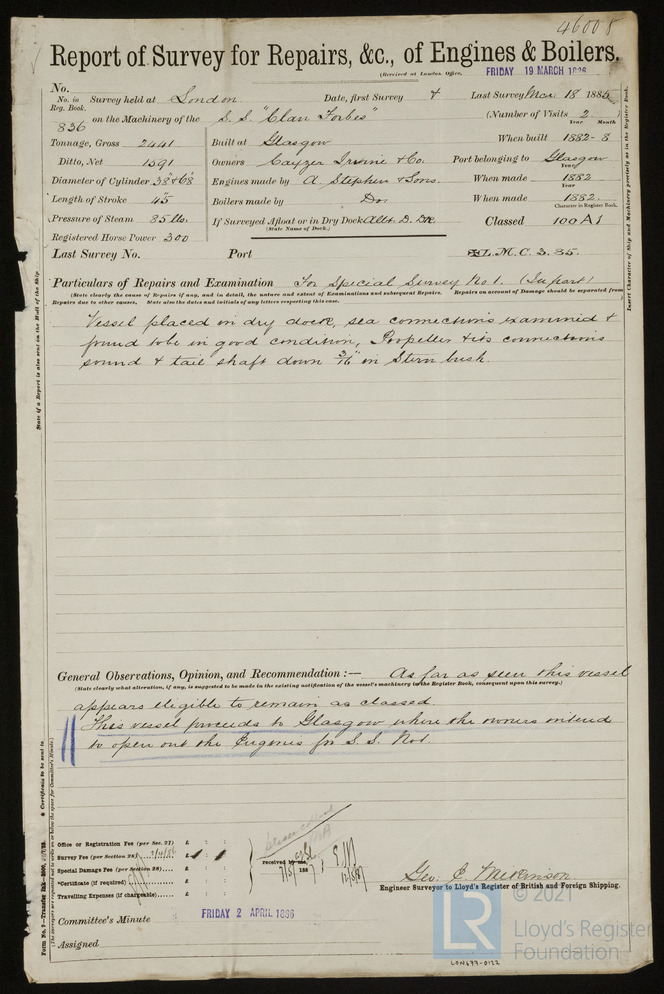 46008
Report of Survey for Repairs, &c., of Engines & Boilers.
(Received at London Office, FRIDAY 19 MARCH 1886
No.
No. in Reg. Book. 836
Survey held at London Date, first Survey 4 Last Survey Mar 18 1886
on the Machinery of the S.S "Clan Forbes" (Number of Visits 2
Year Month
Tonnage, Gross 2441 Built at Glasgow When built 1882-8
Ditto, Net 1591 Owners Cayzer Irvine & Co. Port belonging to Glasgow
Year
Diameter of Cylinder 38" & 68" Engines made by A. Stephen & Sons. When made 1882
Year
Length of Stroke 45 Boilers made by Do. When made 1882.
Character in Register Book.
Pressure of Steam 85 lb. If Surveyed Afloat or in Dry Dock Albt. D. Dk. Classed 100 A1
(State Name of Dock.)
Registered Horse Power 300
Last Survey No. Port L.M.C. 3.85.
Particulars of Repairs and Examination For Special Survey No 1. (In part)
(State clearly the cause of Repairs if any, and in detail, the nature and extent of Examinations and subsequent Repairs. Repairs on account of Damage should be separated from
Repairs due to other causes. State also the dates and initials of any letters respecting this case.
Vessel placed in dry dock, sea connections examined &
found to be in good condition, Propeller & its connections
sound & tail shaft down 3/16" in Stern bush.
General Observations, Opinion, and Recommendation :— As far as seen this vessel
(State clearly what alteration, if any, is suggested to be made in the existing notification of the vessel's machinery in the Register Book, consequent upon this survey.)
appears eligible to remain as classed.
This vessel proceeds to Glasgow where the owners intend
to open out the Engines for S.S. No 1
Office or Registration Fee (per Sec. 27) £ : :
Survey Fee (per Section 28) £ 1 : 1
Special Damage Fee (per Section 28) £ : :
*Certificate (if required) £ : :
Travelling Expenses (if chargeable) £ : :
received by me,
188
Geo. C. Mackinson.
Engineer Surveyor to Lloyd's Register of British and Foreign Shipping.
Committee's Minute FRIDAY 2 APRIL 1886
Assigned
Insert Character of Ship and Machinery precisely as in the Register Book.
State if a Report is also sent on the Hull of the Ship.
© 2021
LR
Lloyd's Register
Foundation
LON677-0122